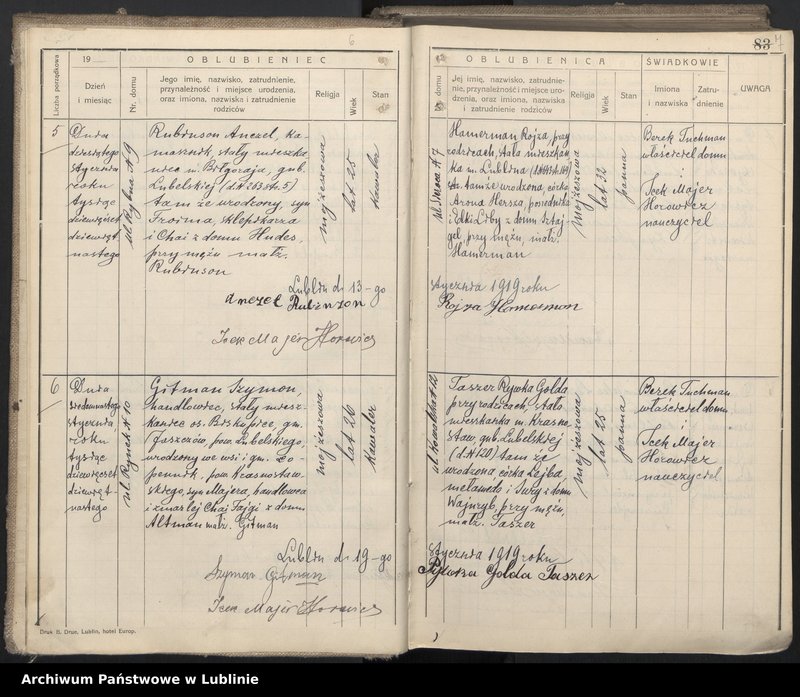 6
83 7
19
OBLUBIENIEC
Liczba porządkowa
Dzień
i miesiąc
Nr. domu
Jego imię, nazwisko, zatrudnienie,
przynależność i miejsce urodzenia,
oraz imiona, nazwiska i zatrudnienie
rodziców
Religja
Wiek
Stan
OBLUBIENICA
domu
Jej imię, nazwisko, zatrudnie-
nie, przynależność i miejsce uro-
dzenia, oraz imiona, nazwiska
i zatrudnienie rodziców
Religja
Wiek
Stan
ŚWIADKOWIE
Imiona
i nazwiska
Zatru-
dnienie
UWAGA
5
Dnia
dziesiątego
stycznia
roku
tysiąc
dziewięćset
dziewięt
nastego
Rubinson Anczel, ka-
masznik, stały mieszka
niec m. Biłgoraja, gub.
Lubelskiej (d. N 263 str. 5)
tamże urodzony, syn
sklepikarza
i Chai z domu Hudes,
przy mężu małż.
Rubinson
mojżeszowa
lat 25
kawaler
Hamerman Rojza, przy
rodzicach, stała mieszkan
ka m. Lublina
tamże urodzona, córka
Arona Hersza, pośrednika
i z domu Sztaj-
gel, przy mężu, małż.
Hamerman
mojżeszowa
lat 22
panna
Berek Tuchman
właściciel domu
i
Icek Majer
Horowicz
nauczyciel
Lublin d. 13-go
stycznia 1919 roku
Anczel Rubinzon
Rojza Hamerman
Icek Majer Horowicz
6
Dnia
siedemnastego
stycznia
roku
tysiąc
dziewięćset
dziewięt-
nastego
ul. Rynek N 10
Gitman Szymon,
handlowiec, stały miesz-
kaniec os. Biskupice, gm.
Jaszczów, pow. Lubelskiego,
urodzony we wsi i gm. Ło-
piennik, pow. Krasnostaw-
skiego, syn Majera, handlowca
i zmarłej Chai Fajgi z domu
Altman małż. Gitman
mojżeszowa
lat 26
kawaler
ul. Kowalska N 12
Taszer Rywka Golda
przy rodzicach, stała
mieszkanka m. Krasno
staw, gub. Lubelskiej
(d. N 120) tamże
urodzona córka Lejba,
mełameda i Sury z domu
Wajnryb, przy mężu,
małż. Taszer
mojżeszowa
lat 25
panna
Berek Tuchman
właściciel domu
i
Icek Majer
Horowicz
nauczyciel
Lublin d. 19-go
stycznia 1919 roku
Szymon Gitman
Rywka Golda Taszer
Icek Majer Horowicz
Druk B. Drue, Lublin, hotel Europ.
Archiwum Państwowe w Lublinie